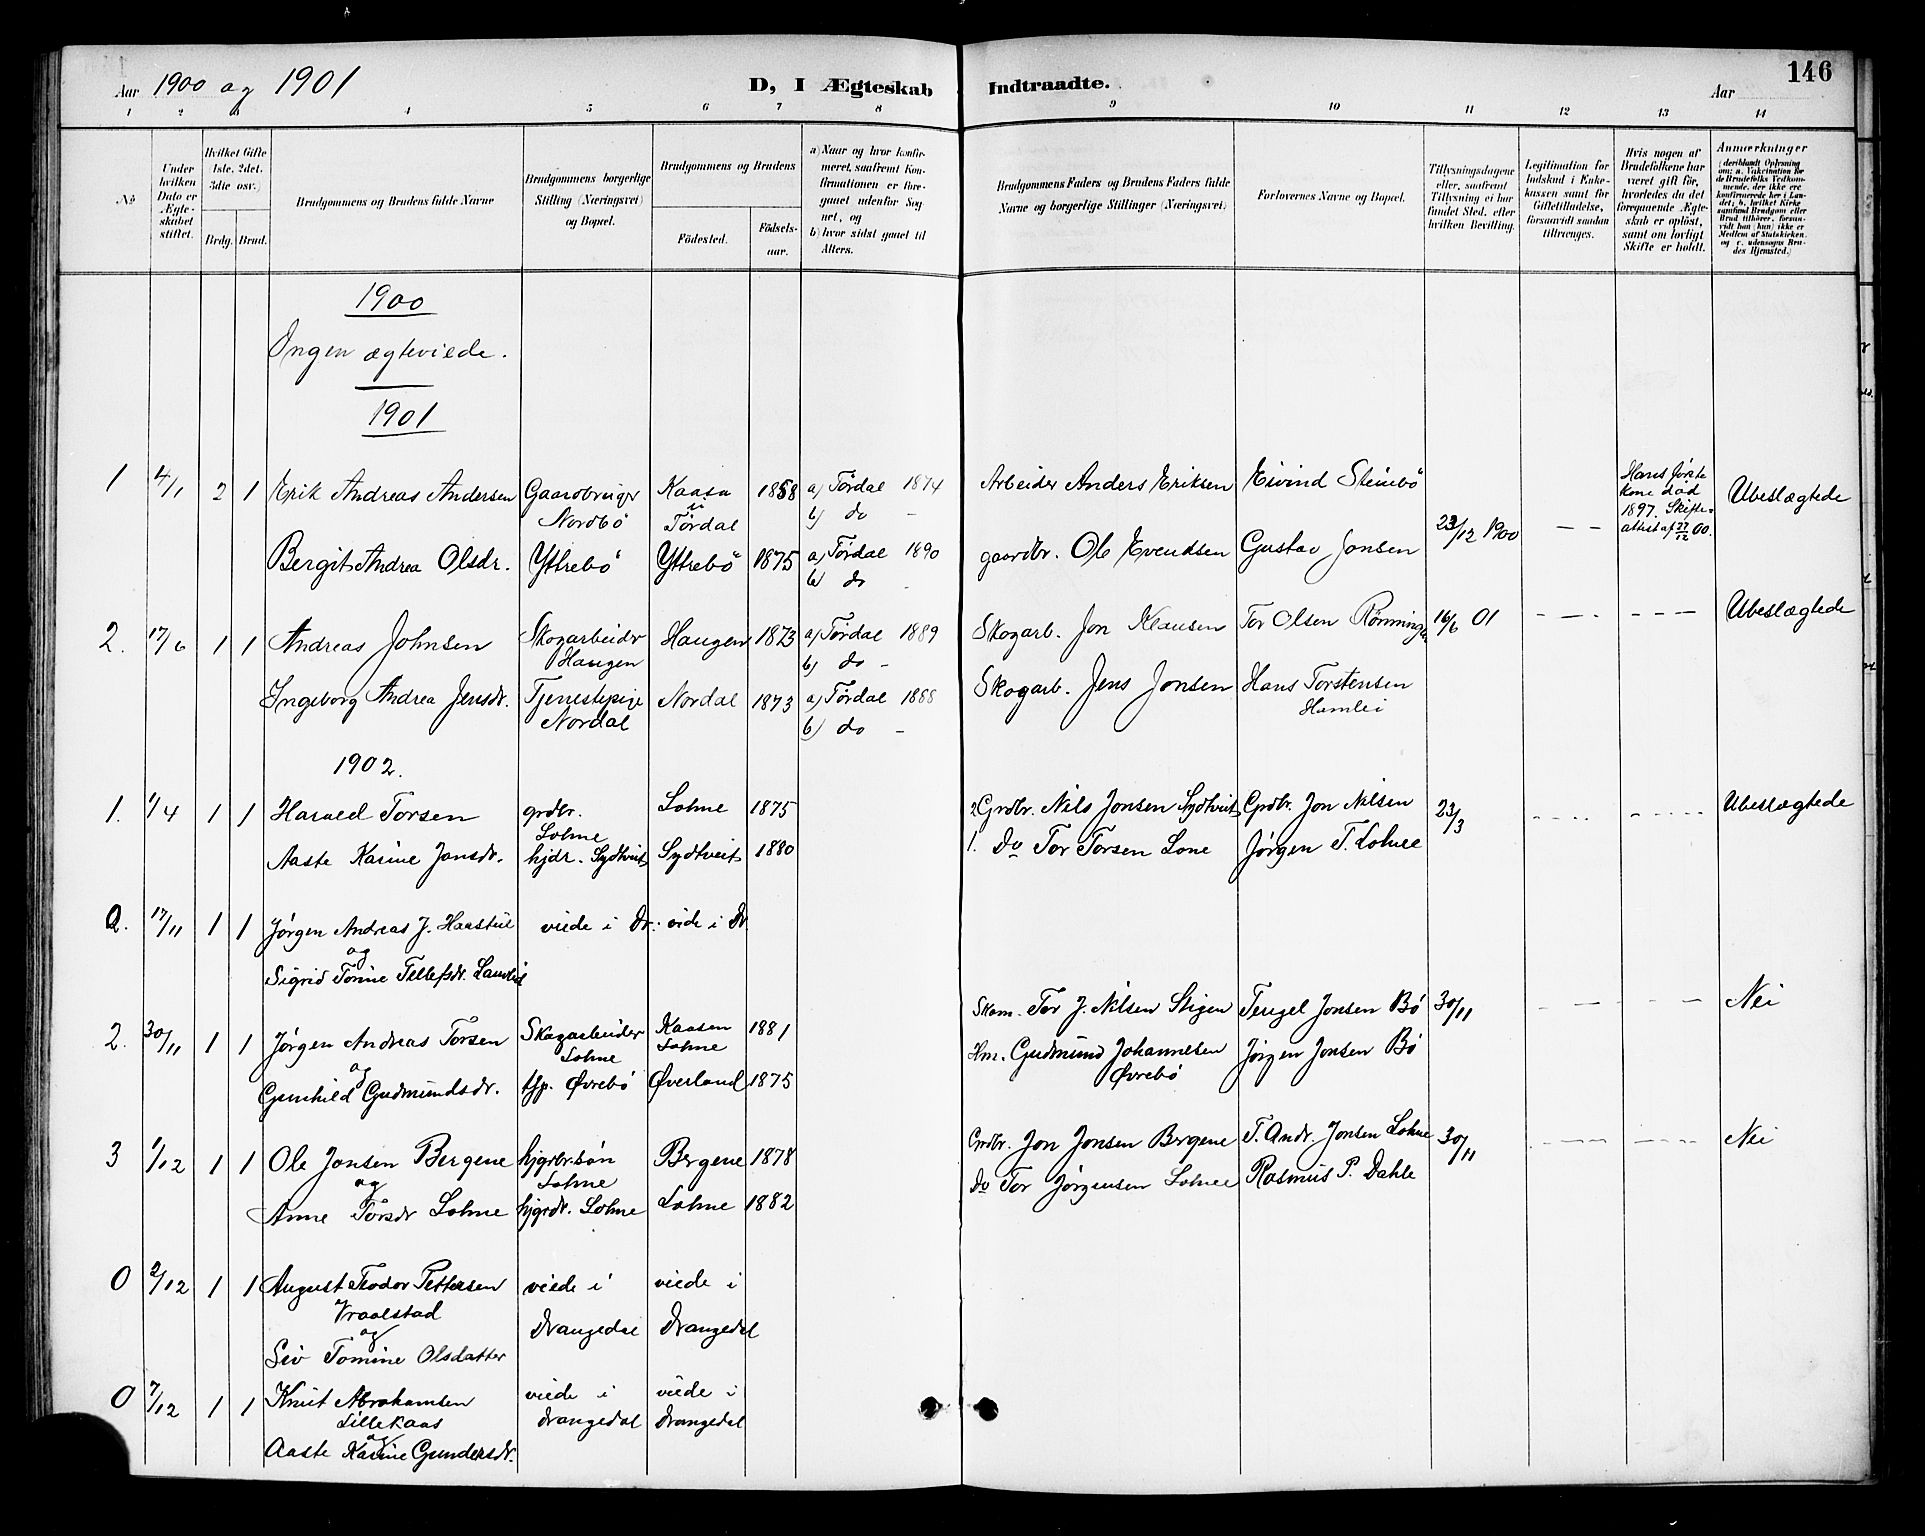 Aar 1900 og 1901
D, I Ægteskab Indtraadte.
Aar
146
1 2 3 4 5 6 7 8 9 10 11 12 13 14
No
Under hvilken Dato er Ægteskabet stiftet.
Hvilket Gifte 1ste. 2det. 3die osv.)
Brdg. Brud.
Brudgommens og Brudens fulde Navne
Brudgommens borgerlige Stilling (Næringsvei) og Bopæl.
Brudgommens og Brudens
Födested.
Födsels-aar.
a) Naar og hvor konfirmeret, saafremt Konfirmationen er foregaaet udenfor Sognet, og
b) hvor sidst gaaet til Alters.
Brudgommens Faders og Brudens Faders fulde Navne og borgerlige Stillinger (Næringsvei)
Forlovernes Navne og Bopæl.
Tillysningsdagene eller, saafremt Tillysning ei har fundet Sted, efter hvilken Bevilling.
Legitimation for Indskud i Enkekassen samt for Giftetilladelse, forsaavidt saadan tiltrænges.
Hvis nogen af Brudefolkene har været gift før, hvorledes da det foregaaende Ægteskab er oplöst, samt om lovligt Skifte er holdt.
Anmærkninger (deriblandt Oplysning om: a. Vakcination for de Brudefolks Vedkommende, der ikke ere konfirmerede her i Landet; b. hvilket Kirkesamfund Brudgom eller Brud tilhörer, forsaavidt han (hun) ikke er Medlem af Statskirken. og c. udensogns Brudes Hjemsted.)
1900
Ingen ægteviede.
1901
1 4/1 2 1 Erik Andreas Andersen Gaardbruger Nordbö Kaasa i Tördal 1858 a) Tördal 1874 b) do - Arbeider Anders Eriksen Eivind Steinbö
Bergit Andrea Olsdr. Yttrebö Yttrebö 1875 a) Tördal 1890 b) do - gaardbr. Ole Evendsen Gustav Jonsen 23/12 1900 — — Hans förste kone död 1897. Skifteattest af 27/12 00. Ubeslægtede
2. 17/6 1 1 Andreas Johnsen Skogarbeider Haugen Haugen 1873 a) Tördal 1889 b) do - Skogarb. Jon Klausen Tor Olsen Rönningen 16/6 01 — — - — — — Ubeslægtede
Ingeborg Andrea Jensdr. Tjenestepige Nordal Nordal 1873 a) Tördal 1888 b) do - Skogarb. Jens Jonsen Hans Torstensen Hamlei
1902.
1. 1/4 1 1 Harald Torsen grdbr. Lohne Lohne 1875 2 Grdbr. Nils Jonsen Sydtveit Grdbr. Jon Nilsen 23/3 - - - - - - - - - Ubeslægtede
Aaste Karine Jonsdr. hjdr. Sydtveit Sydtveit 1880 1. Do Tor Torsen Lone Jørgen T. Lohne
0. 17/11 1 1 Jørgen Andreas J. Haastul viede i Dr. vide i Dr.
og
Sigrid Tomine Tellefsdr.
2. 30/11 1 1 Jørgen Andreas Torsen Skogarbeider Lohne Kaasen Lohne 1881 Tor J. Nilsen Stigen Tengel Jonsen Bö 30/11 - — - - — Nei
og
Gunhild Gudmundsdr. tjp. Øvrebö Øverland 1875 Hm. Gudmund Johannesen Øvrebö Jörgen Jonsen Bö
3 1/12 1 1 Ole Jonsen Bergene hjgrdbr.sön Lohne Bergene 1878 Grdbr. Jon Jonsen Bergene T. Andr. Jonsen Lohne 30/11 - - — - - - — - - Nei
og
Anne Torsdr Lohne hjgrdr. Lohne Lohne 1882 Do Tor Jørgensen Lohne Rasmus P. Dahle
0 2/12 1 1 August Teodor Pettersen Vraalstad viede i Drangedal viede i Drangedal
og
Siv Tomine Olsdatter
0 7/12 1 1 Knut Abrahamsen Lillekaas viede i drangedal viede i drangedal
og
Aaste Karine Gundersdr.